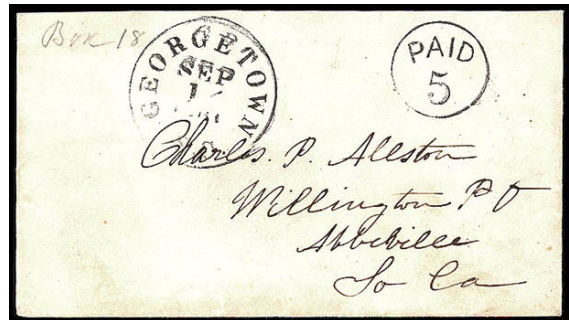 Box 18
GEORGETOWN
SEP
PAID
5
Charles. P. Allston
Willington P O
Abbeville
So Ca